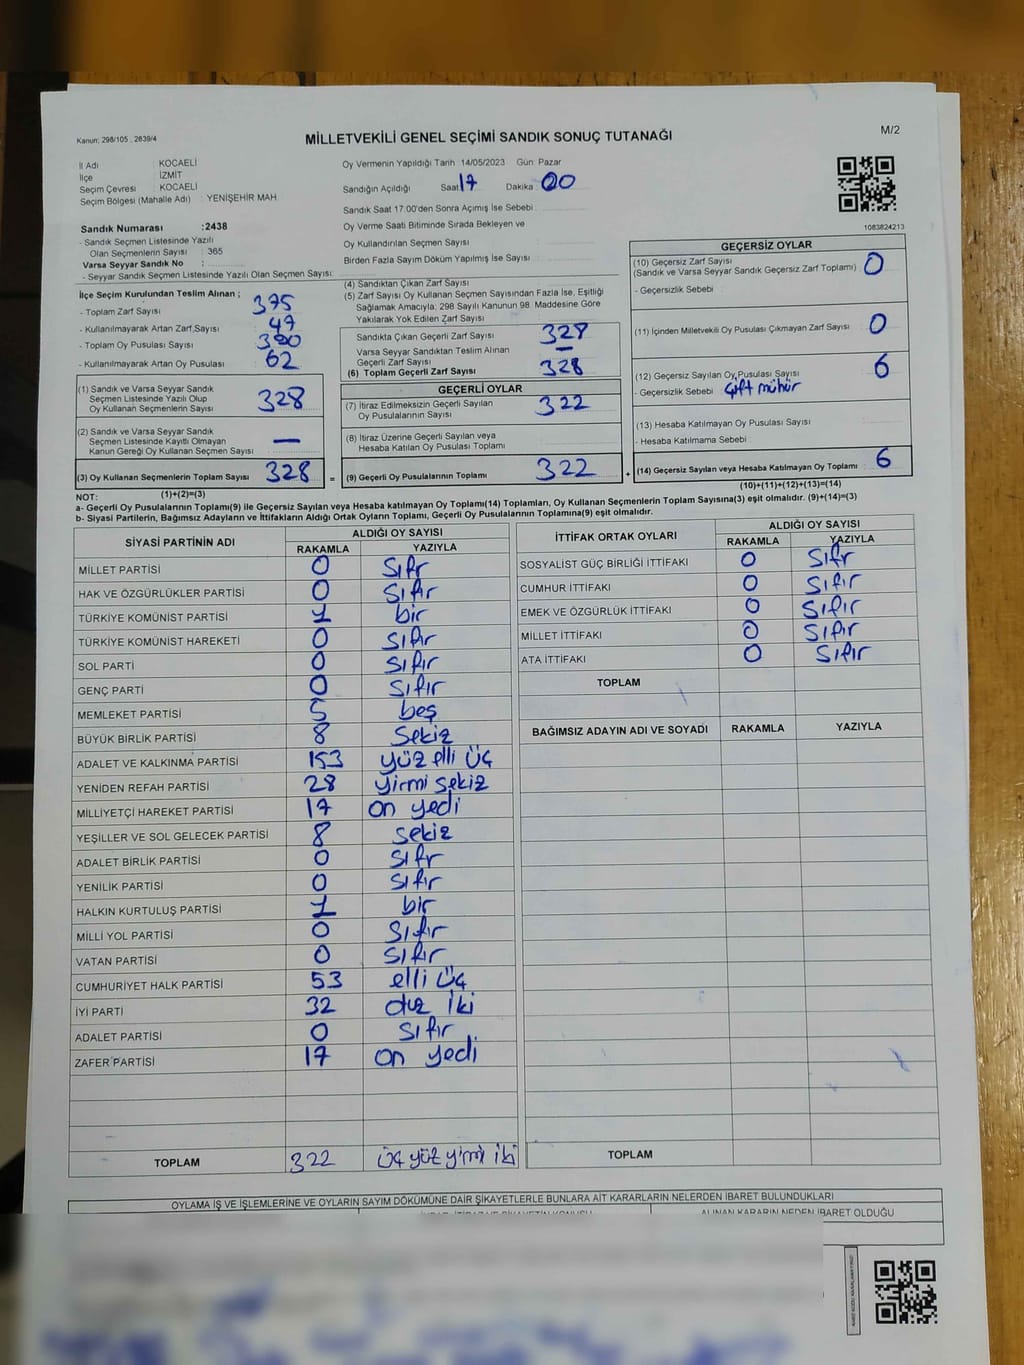 Kanun; 298/105 , 2839/4
MİLLETVEKİLİ GENEL SEÇİMİ SANDIK SONUÇ TUTANAĞI
M/2
İl Adı : KOCAELİ
İlçe : İZMİT
Seçim Çevresi : KOCAELİ
Seçim Bölgesi (Mahalle Adı) : YENİŞEHİR MAH
Sandık Numarası :2438
- Sandık Seçmen Listesinde Yazılı
Olan Seçmenlerin Sayısı : 365
Varsa Seyyar Sandık No :
- Seyyar Sandık Seçmen Listesinde Yazılı Olan Seçmen Sayısı:
Oy Vermenin Yapıldığı Tarih 14/05/2023 Gün: Pazar
Sandığın Açıldığı Saat 17 Dakika 00
Sandık Saat 17.00'den Sonra Açımış İse Sebebi :
Oy Verme Saati Bitiminde Sırada Bekleyen ve
Oy Kullandırılan Seçmen Sayısı :
Birden Fazla Sayım Döküm Yapılmış İse Sayısı :
1083824213
İlçe Seçim Kurulundan Teslim Alınan ;
- Toplam Zarf Sayısı : 375
- Kullanılmayarak Artan Zarf Sayısı : 47
- Toplam Oy Pusulası Sayısı :
- Kullanılmayarak Artan Oy Pusulası : 62
(1) Sandık ve Varsa Seyyar Sandık
Seçmen Listesinde Yazılı Olup
Oy Kullanan Seçmenlerin Sayısı : 328
(2) Sandık ve Varsa Seyyar Sandık
Seçmen Listesinde Kayıtlı Olmayan
Kanun Gereği Oy Kullanan Seçmen Sayısı : —
(3) Oy Kullanan Seçmenlerin Toplam Sayısı : 328
(1)+(2)=(3)
(4) Sandıktan Çıkan Zarf Sayısı :
(5) Zarf Sayısı Oy Kullanan Seçmen Sayısından Fazla İse, Eşitliği
Sağlamak Amacıyla; 298 Sayılı Kanunun 98. Maddesine Göre
Yakılarak Yok Edilen Zarf Sayısı :
Sandıkta Çıkan Geçerli Zarf Sayısı : 328
Varsa Seyyar Sandıktan Teslim Alınan
Geçerli Zarf Sayısı : —
(6) Toplam Geçerli Zarf Sayısı : 328
GEÇERLİ OYLAR
(7) İtiraz Edilmeksizin Geçerli Sayılan
Oy Pusulalarının Sayısı : 322
(8) İtiraz Üzerine Geçerli Sayılan veya
Hesaba Katılan Oy Pusulası Toplamı :
= (9) Geçerli Oy Pusulalarının Toplamı : 322 +
GEÇERSİZ OYLAR
(10) Geçersiz Zarf Sayısı
(Sandık ve Varsa Seyyar Sandık Geçersiz Zarf Toplamı) : 0
- Geçersizlik Sebebi :
(11) İçinden Milletvekili Oy Pusulası Çıkmayan Zarf Sayısı : 0
(12) Geçersiz Sayılan Oy Pusulası Sayısı : 6
- Geçersizlik Sebebi : Çift mühür
(13) Hesaba Katılmayan Oy Pusulası Sayısı :
- Hesaba Katılmama Sebebi :
(14) Geçersiz Sayılan veya Hesaba Katılmayan Oy Toplamı : 6
(10)+(11)+(12)+(13)=(14)
NOT:
a- Geçerli Oy Pusulalarının Toplamı(9) ile Geçersiz Sayılan veya Hesaba katılmayan Oy Toplamı(14) Toplamları, Oy Kullanan Seçmenlerin Toplam Sayısına(3) eşit olmalıdır. (9)+(14)=(3)
b- Siyasi Partilerin, Bağımsız Adayların ve İttifakların Aldığı Ortak Oyların Toplamı, Geçerli Oy Pusulalarının Toplamına(9) eşit olmalıdır.
SİYASİ PARTİNİN ADI ALDIĞI OY SAYISI
RAKAMLA YAZIYLA
MİLLET PARTİSİ 0 Sıfr
HAK VE ÖZGÜRLÜKLER PARTİSİ 0 Sıfır
TÜRKİYE KOMÜNİST PARTİSİ 1 bir
TÜRKİYE KOMÜNİST HAREKETİ 0 Sıfır
SOL PARTİ 0 Sıfır
GENÇ PARTİ 0 Sıfır
MEMLEKET PARTİSİ 5 beş
BÜYÜK BİRLİK PARTİSİ 8 Sekiz
ADALET VE KALKINMA PARTİSİ 153 yüz elli üç
YENİDEN REFAH PARTİSİ 28 yirmi sekiz
MİLLİYETÇİ HAREKET PARTİSİ 17 on yedi
YEŞİLLER VE SOL GELECEK PARTİSİ 8 Sekiz
ADALET BİRLİK PARTİSİ 0 Sıfr
YENİLİK PARTİSİ 0 Sıfır
HALKIN KURTULUŞ PARTİSİ 1 bir
MİLLİ YOL PARTİSİ 0 Sıfır
VATAN PARTİSİ 0 Sıfır
CUMHURİYET HALK PARTİSİ 53 elli üç
İYİ PARTİ 32 otuz iki
ADALET PARTİSİ 0 Sıfır
ZAFER PARTİSİ 17 on yedi
TOPLAM 322 üç yüz yirmi iki
İTTİFAK ORTAK OYLARI ALDIĞI OY SAYISI
RAKAMLA YAZIYLA
SOSYALİST GÜÇ BİRLİĞİ İTTİFAKI 0 Sıfr
CUMHUR İTTİFAKI 0 Sıfır
EMEK VE ÖZGÜRLÜK İTTİFAKI 0 Sıfır
MİLLET İTTİFAKI 0 Sıfır
ATA İTTİFAKI 0 Sıfır
TOPLAM
BAĞIMSIZ ADAYIN ADI VE SOYADI RAKAMLA YAZIYLA
TOPLAM
OYLAMA İŞ VE İŞLEMLERİNE VE OYLARIN SAYIM DÖKÜMÜNE DAİR ŞİKAYETLERLE BUNLARA AİT KARARLARIN NELERDEN İBARET BULUNDUKLARI
ALINAN KARARIN NEDEN İBARET OLDUĞU